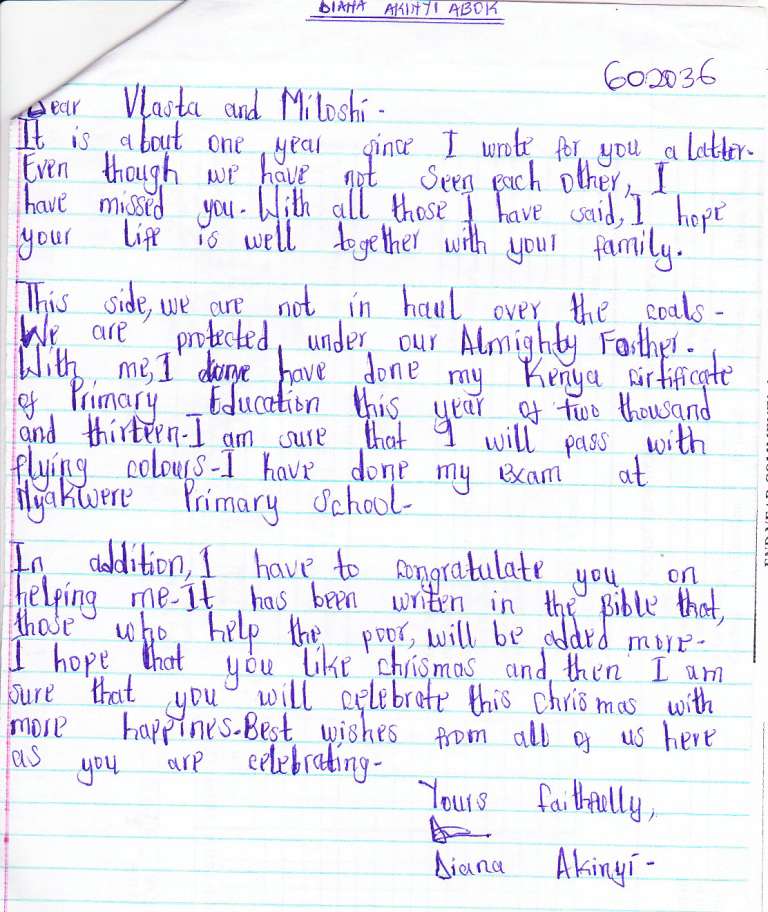 DIANA AKINYI ABOK
602036
Dear Vlasta and Miloshi-
It is about one year since I wrote for you a latter.
Even though we have not seen each other, I
have missed you. With all those I have said, I hope
your life is well together with your family.
This side, we are not in haul over the coals-
We are protected under our Almighty Father.
With me, I done have done my Kenya cirtificate
of Primary Education this year of two thousand
and thirteen-I am sure that I will pass with
flying colours-I have done my exam at
Nyakwere Primary School-
In addition, I have to congratulate you on
helping me-It has been writen in the Bible that,
those who help the poor, will be added more-
I hope that you like chrismas and then I am
sure that you will celebrate this chrismas with
more happines-Best wishes from all of us here
as you are celebrating-
Yours faithfully,
Diana Akinyi-